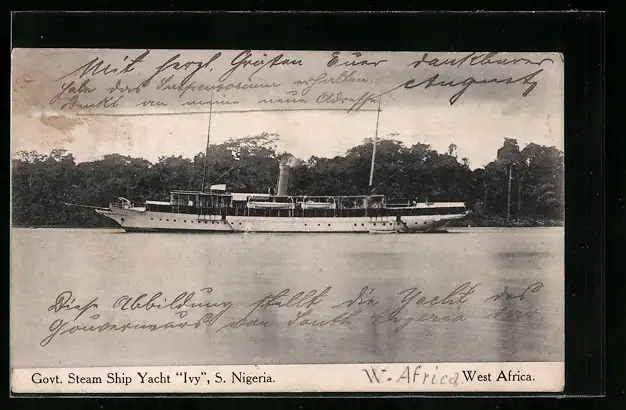 Mit herzl. Grüßen Euer dankbarer
habe das Suspensorium erhalten August
denkt an meine neue Adresse
Diese Abbildung stellt die Yacht des
Gouverneurs von South Nigeria dar.
Govt. Steam Ship Yacht “Ivy”, S. Nigeria. W. Africa West Africa.